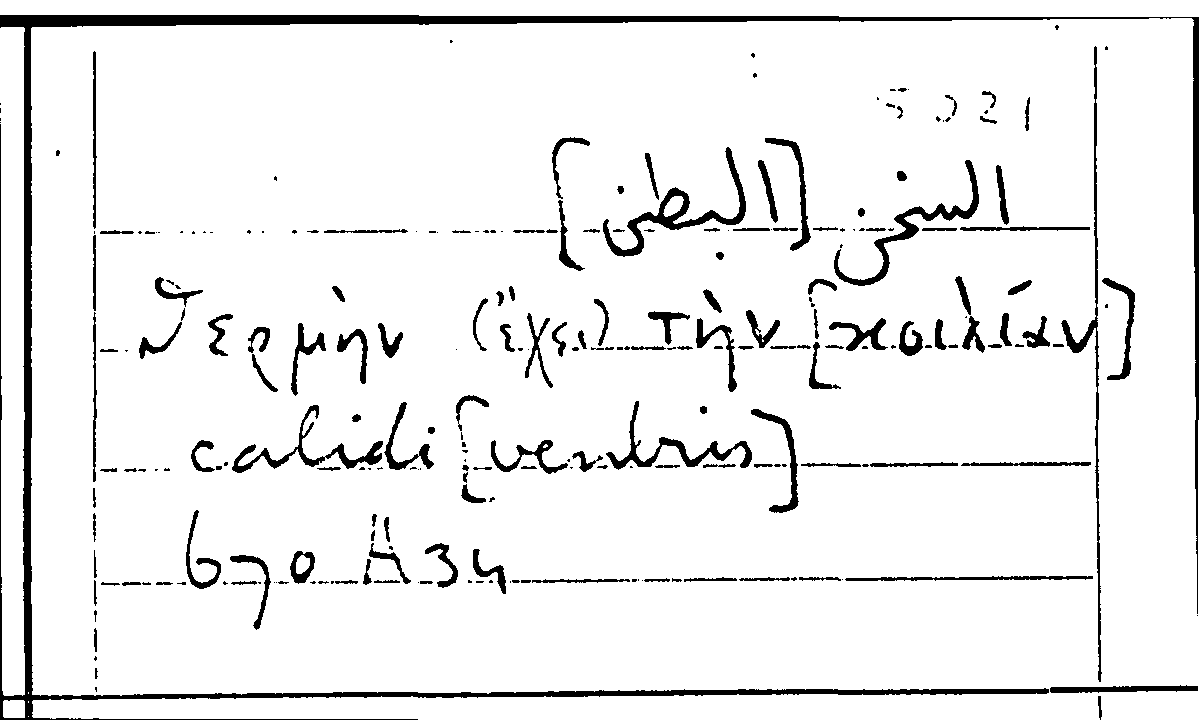 5021
السخن [البطن]
θερμὴν (ἔχει) τὴν [κοιλίαν]
calidi [ventris]
670 A 34